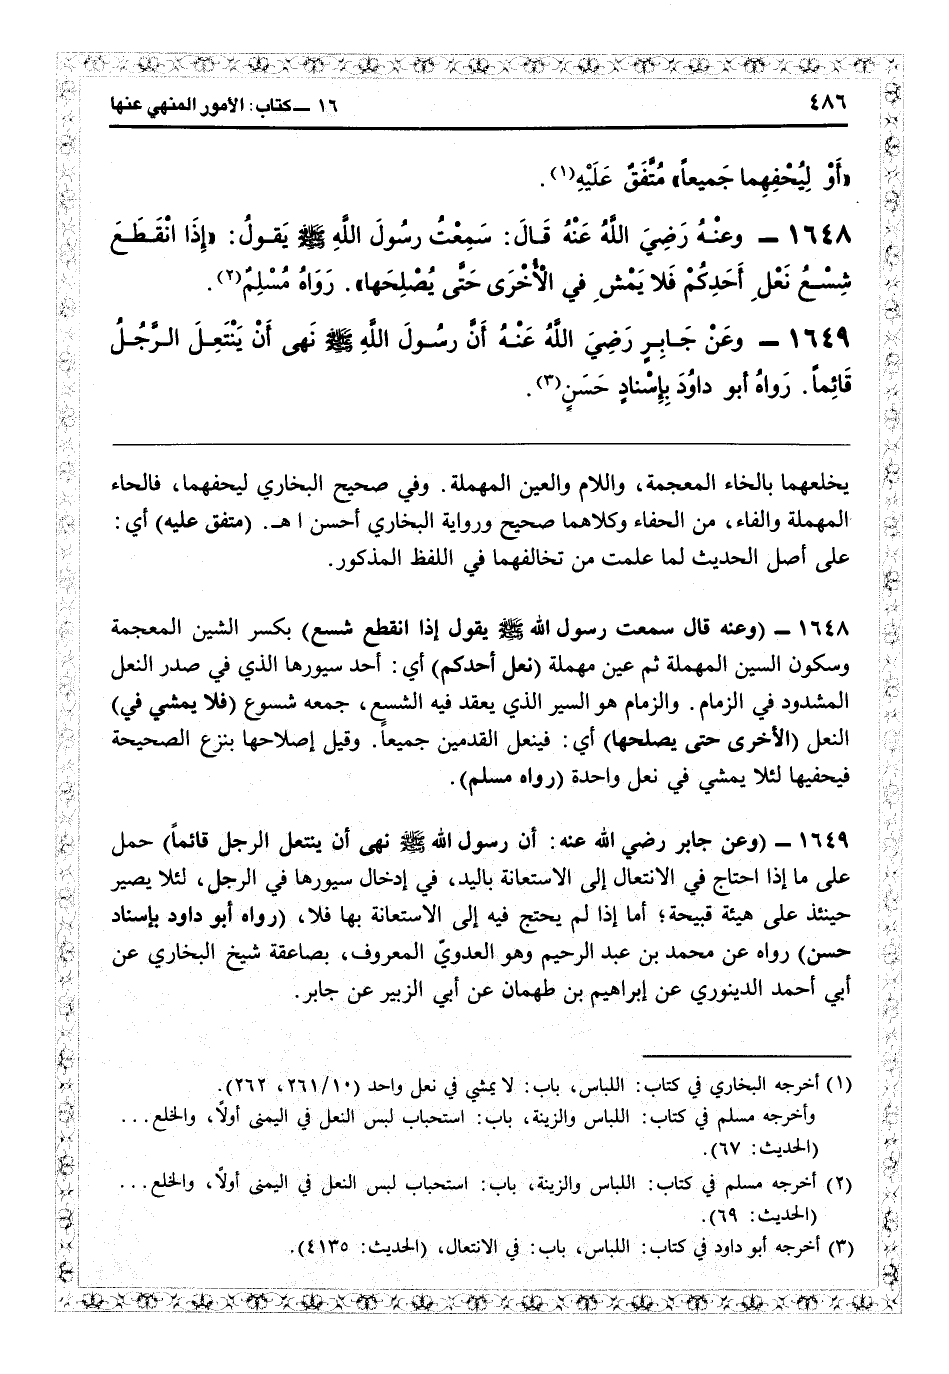 ٤٨٦
١٦ ــ كتاب: الأمور المنهي عنها
«أَوْ لِيُحْفِهِما جَمِيعاً» مُتَّفَقٌ عَلَيْهِ(١).
١٦٤٨ ــ وعنْهُ رَضِيَ اللَّهُ عَنْهُ قَالَ: سَمِعْتُ رسُولَ اللَّهِ ﷺ يَقولُ: «إِذَا انْقَطَعَ
شِسْعُ نَعْلِ أَحَدِكُمْ فَلا يَمْشِ في الْأُخْرَى حَتَّى يُصْلِحَها». رَوَاهُ مُسْلِمٌ(٢).
١٦٤٩ ــ وعَنْ جَابِرٍ رَضِيَ اللَّهُ عَنْهُ أَنَّ رسُولَ اللَّهِ ﷺ نَهى أَنْ يَنْتَعِلَ الرَّجُلُ
قَائِماً. رَواهُ أبو داوُدَ بِإِسْنادٍ حَسَنٍ(٣).
يخلعهما بالخاء المعجمة، واللام والعين المهملة. وفي صحيح البخاري ليحفهما، فالحاء
المهملة والفاء، من الحفاء وكلاهما صحيح ورواية البخاري أحسن ا هـ. (متفق عليه) أي:
على أصل الحديث لما علمت من تخالفهما في اللفظ المذكور.
١٦٤٨ ــ (وعنه قال سمعت رسول الله ﷺ يقول إذا انقطع شسع) بكسر الشين المعجمة
وسكون السين المهملة ثم عين مهملة (نعل أحدكم) أي: أحد سيورها الذي في صدر النعل
المشدود في الزمام. والزمام هو السير الذي يعقد فيه الشسع، جمعه شسوع (فلا يمشي في)
النعل (الأخرى حتى يصلحها) أي: فينعل القدمين جميعاً. وقيل إصلاحها بنزع الصحيحة
فيحفيها لئلا يمشي في نعل واحدة (رواه مسلم).
١٦٤٩ ــ (وعن جابر رضي الله عنه: أن رسول الله ﷺ نهى أن ينتعل الرجل قائماً) حمل
على ما إذا احتاج في الانتعال إلى الاستعانة باليد، في إدخال سيورها في الرجل، لئلا يصير
حينئذ على هيئة قبيحة؛ أما إذا لم يحتج فيه إلى الاستعانة بها فلا، (رواه أبو داود بإسناد
حسن) رواه عن محمد بن عبد الرحيم وهو العدويّ المعروف، بصاعقة شيخ البخاري عن
أبي أحمد الدينوري عن إبراهيم بن طهمان عن أبي الزبير عن جابر.
(١) أخرجه البخاري في كتاب: اللباس، باب: لا يمشي في نعل واحد (٢٦١/١٠، ٢٦٢).
وأخرجه مسلم في كتاب: اللباس والزينة، باب: استحباب لبس النعل في اليمنى أولاً، والخلع...
(الحديث: ٦٧).
(٢) أخرجه مسلم في كتاب: اللباس والزينة، باب: استحباب لبس النعل في اليمنى أولاً، والخلع...
(الحديث: ٦٩).
(٣) أخرجه أبو داود في كتاب: اللباس، باب: في الانتعال، (الحديث: ٤١٣٥).